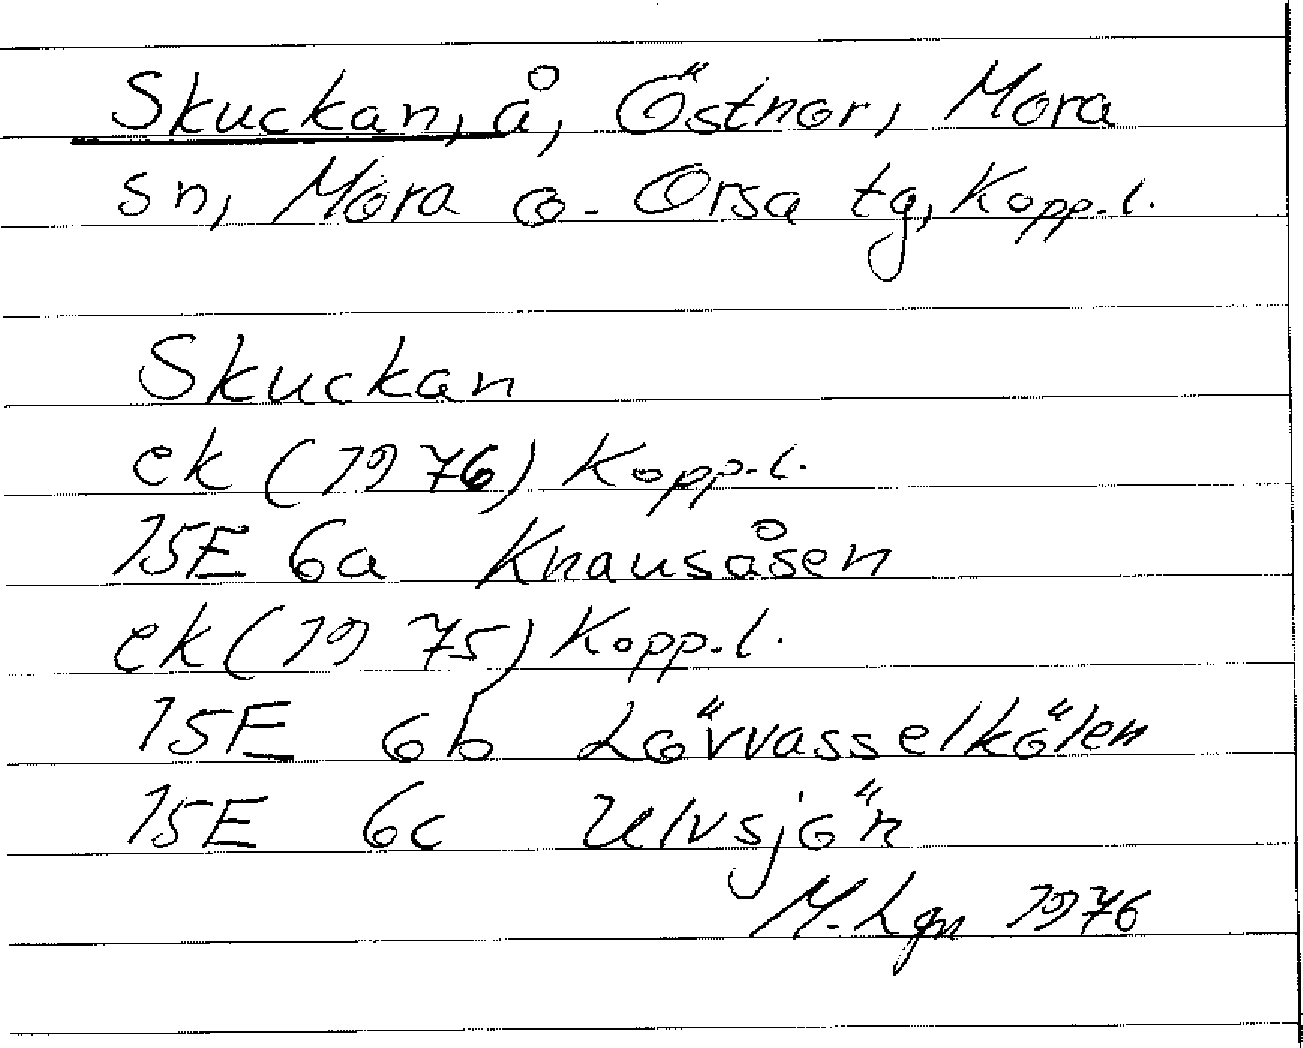 Skuckan, å, Östnor, Mora
sn, Mora o. Orsa tg, Kopp.l.
Skuckan
ek (1976) Kopp.l.
15E 6a Knausåsen
ek (1975) Kopp.l.
15E 6b Lövvasselkölen
15E 6c Ulvsjön
M. Lgn 1976